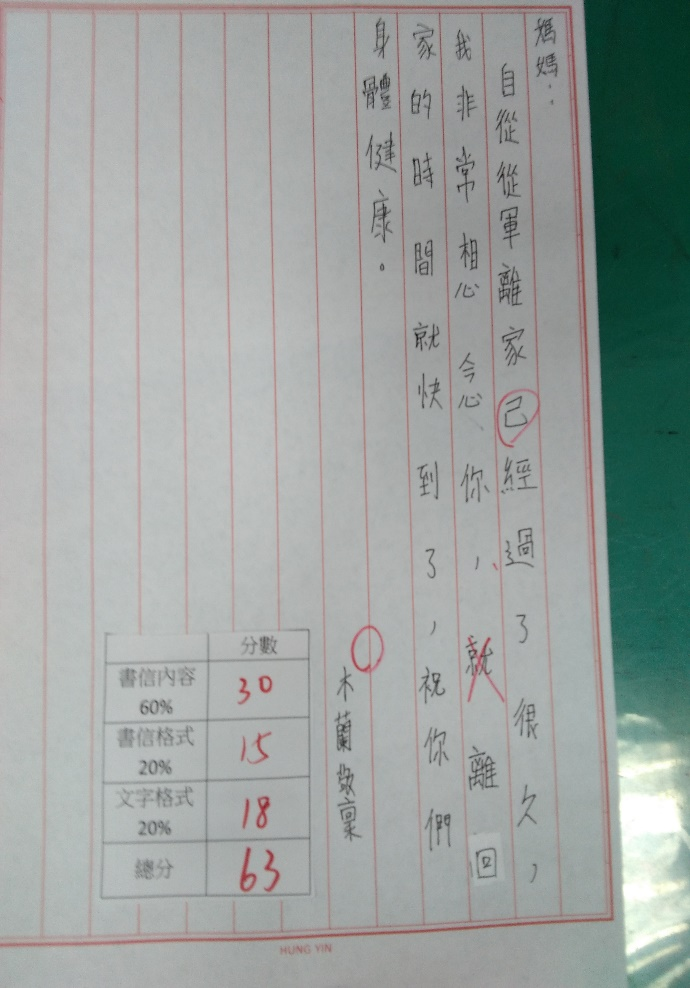 媽媽：
自從從軍離家己經過了很久，
我非常想念你，就離回
家的時間就快到了，祝你們
身體健康。
木蘭敬稟
分數
書信內容 60% 30
書信格式 20% 15
文字格式 20% 18
總分 63
HUNG YIN